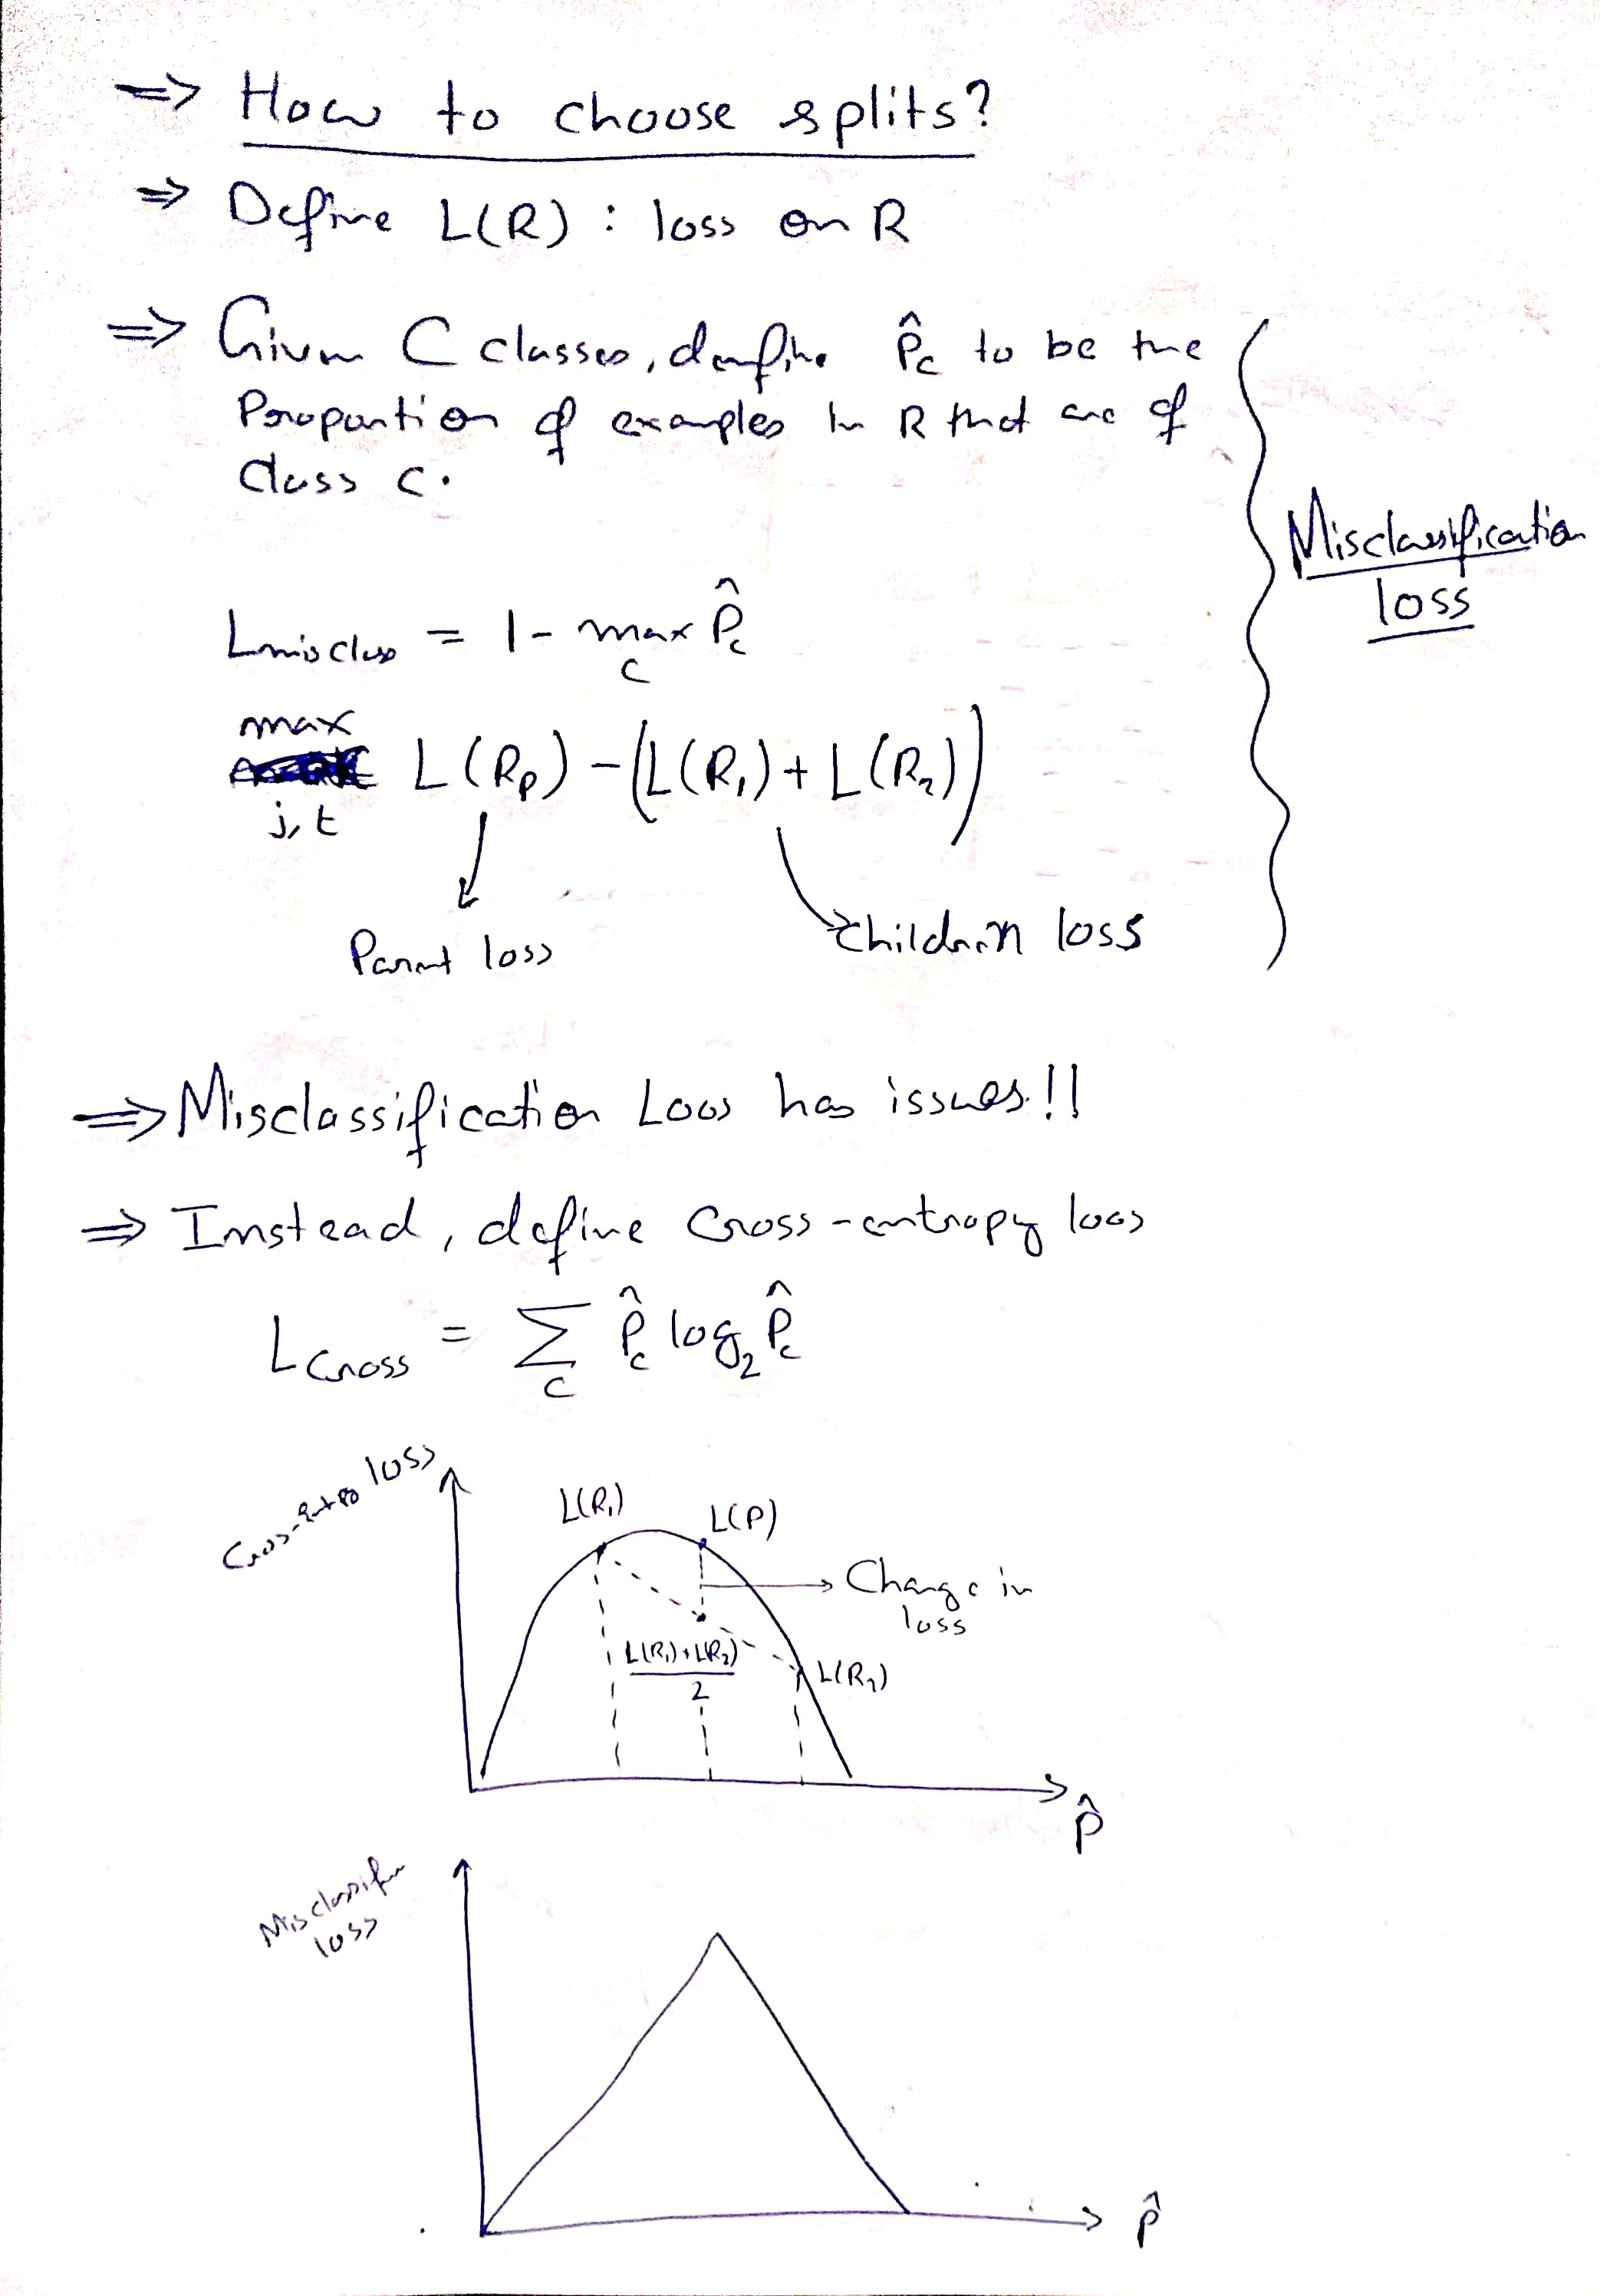 ⇒ How to choose splits?
⇒ Define L(R) : loss on R
⇒ Given C classes, define P̂c to be the
Proportion of examples in R that are of
Class c.
Misclassification
loss
Lmisclass = 1 - max P̂c
c
max
j, t
L(Rp) - (L(R₁) + L(R₂))
Parent loss
Children loss
⇒ Misclassification Loss has issues!!
⇒ Instead, define Cross-entropy loss
LCross = Σ P̂c log₂ P̂c
c
Cross-entro loss
L(R₁)
L(P)
Change in
loss
L(R₁)+L(R₂)
2
L(R₂)
p̂
Misclassifn
loss
p̂